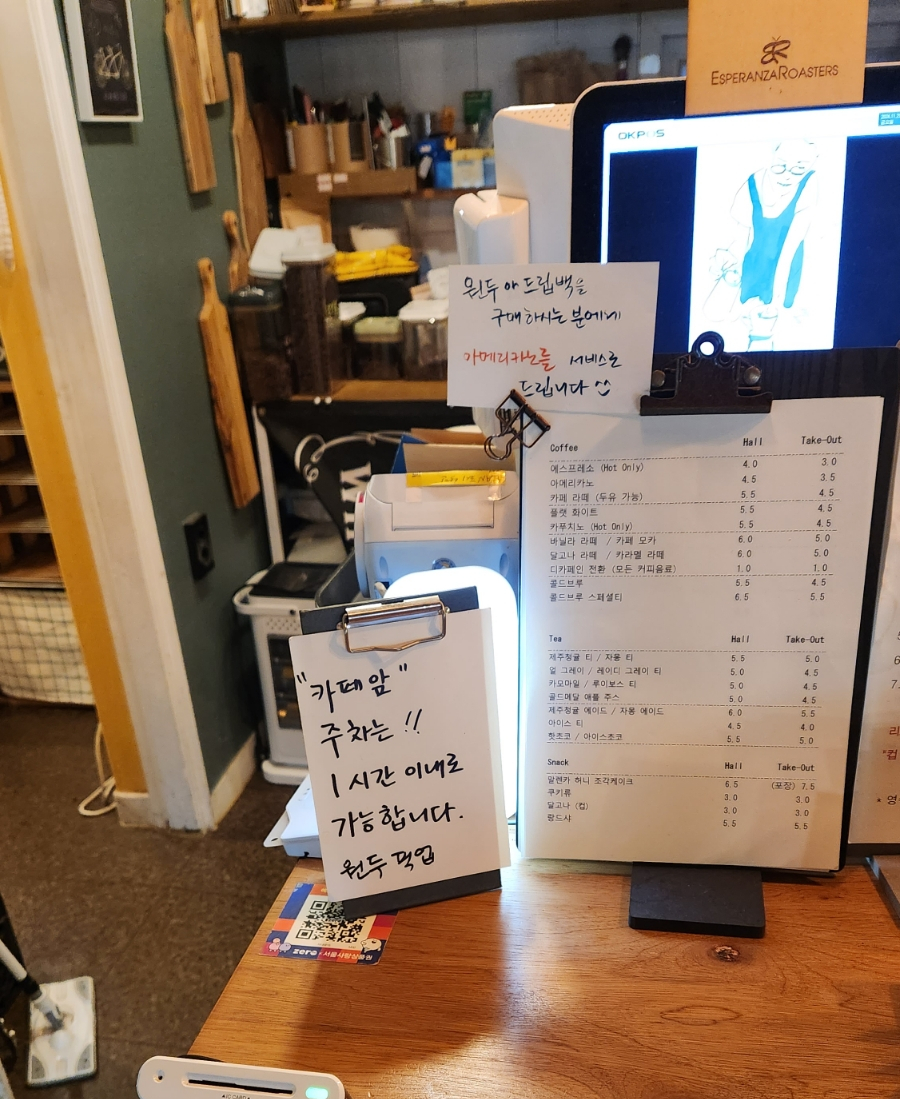 ESPERANZAROASTERS
OKPOS
원두 아 드립백을
구매하시는 분에게
아메리카노를 서비스로
드립니다
Coffee Hall Take-Out
에스프레소 (Hot Only) 4.0 3.0
아메리카노 4.5 3.5
카페 라떼 (두유 가능) 5.5 4.5
플랫 화이트 5.5 4.5
카푸치노 (Hot Only) 5.5 4.5
바닐라 라떼 / 카페 모카 6.0 5.0
달고나 라떼 / 카라멜 라떼 6.0 5.0
디카페인 전환 (모든 커피음료) 1.0 1.0
콜드브루 5.5 4.5
콜드브루 스페셜티 6.5 5.5
Tea Hall Take-Out
제주청귤 티 / 자몽 티 5.5 5.0
얼 그레이 / 레이디 그레이 티 5.0 4.5
카모마일 / 루이보스 티 5.0 4.5
골드메달 애플 주스 5.0 4.5
제주청귤 에이드 / 자몽 에이드 6.0 5.5
아이스 티 4.5 4.0
핫초코 / 아이스초코 5.5 5.0
Snack Hall Take-Out
말렌카 허니 조각케이크 6.5 (포장) 7.5
쿠키류 3.0 3.0
달고나 (컵) 3.0 3.0
팡드샤 5.5 5.5
"카페 앞"
주차는 !!
1시간 이내로
가능합니다.
원두 픽업
zero 서울사랑상품권
IC CARD